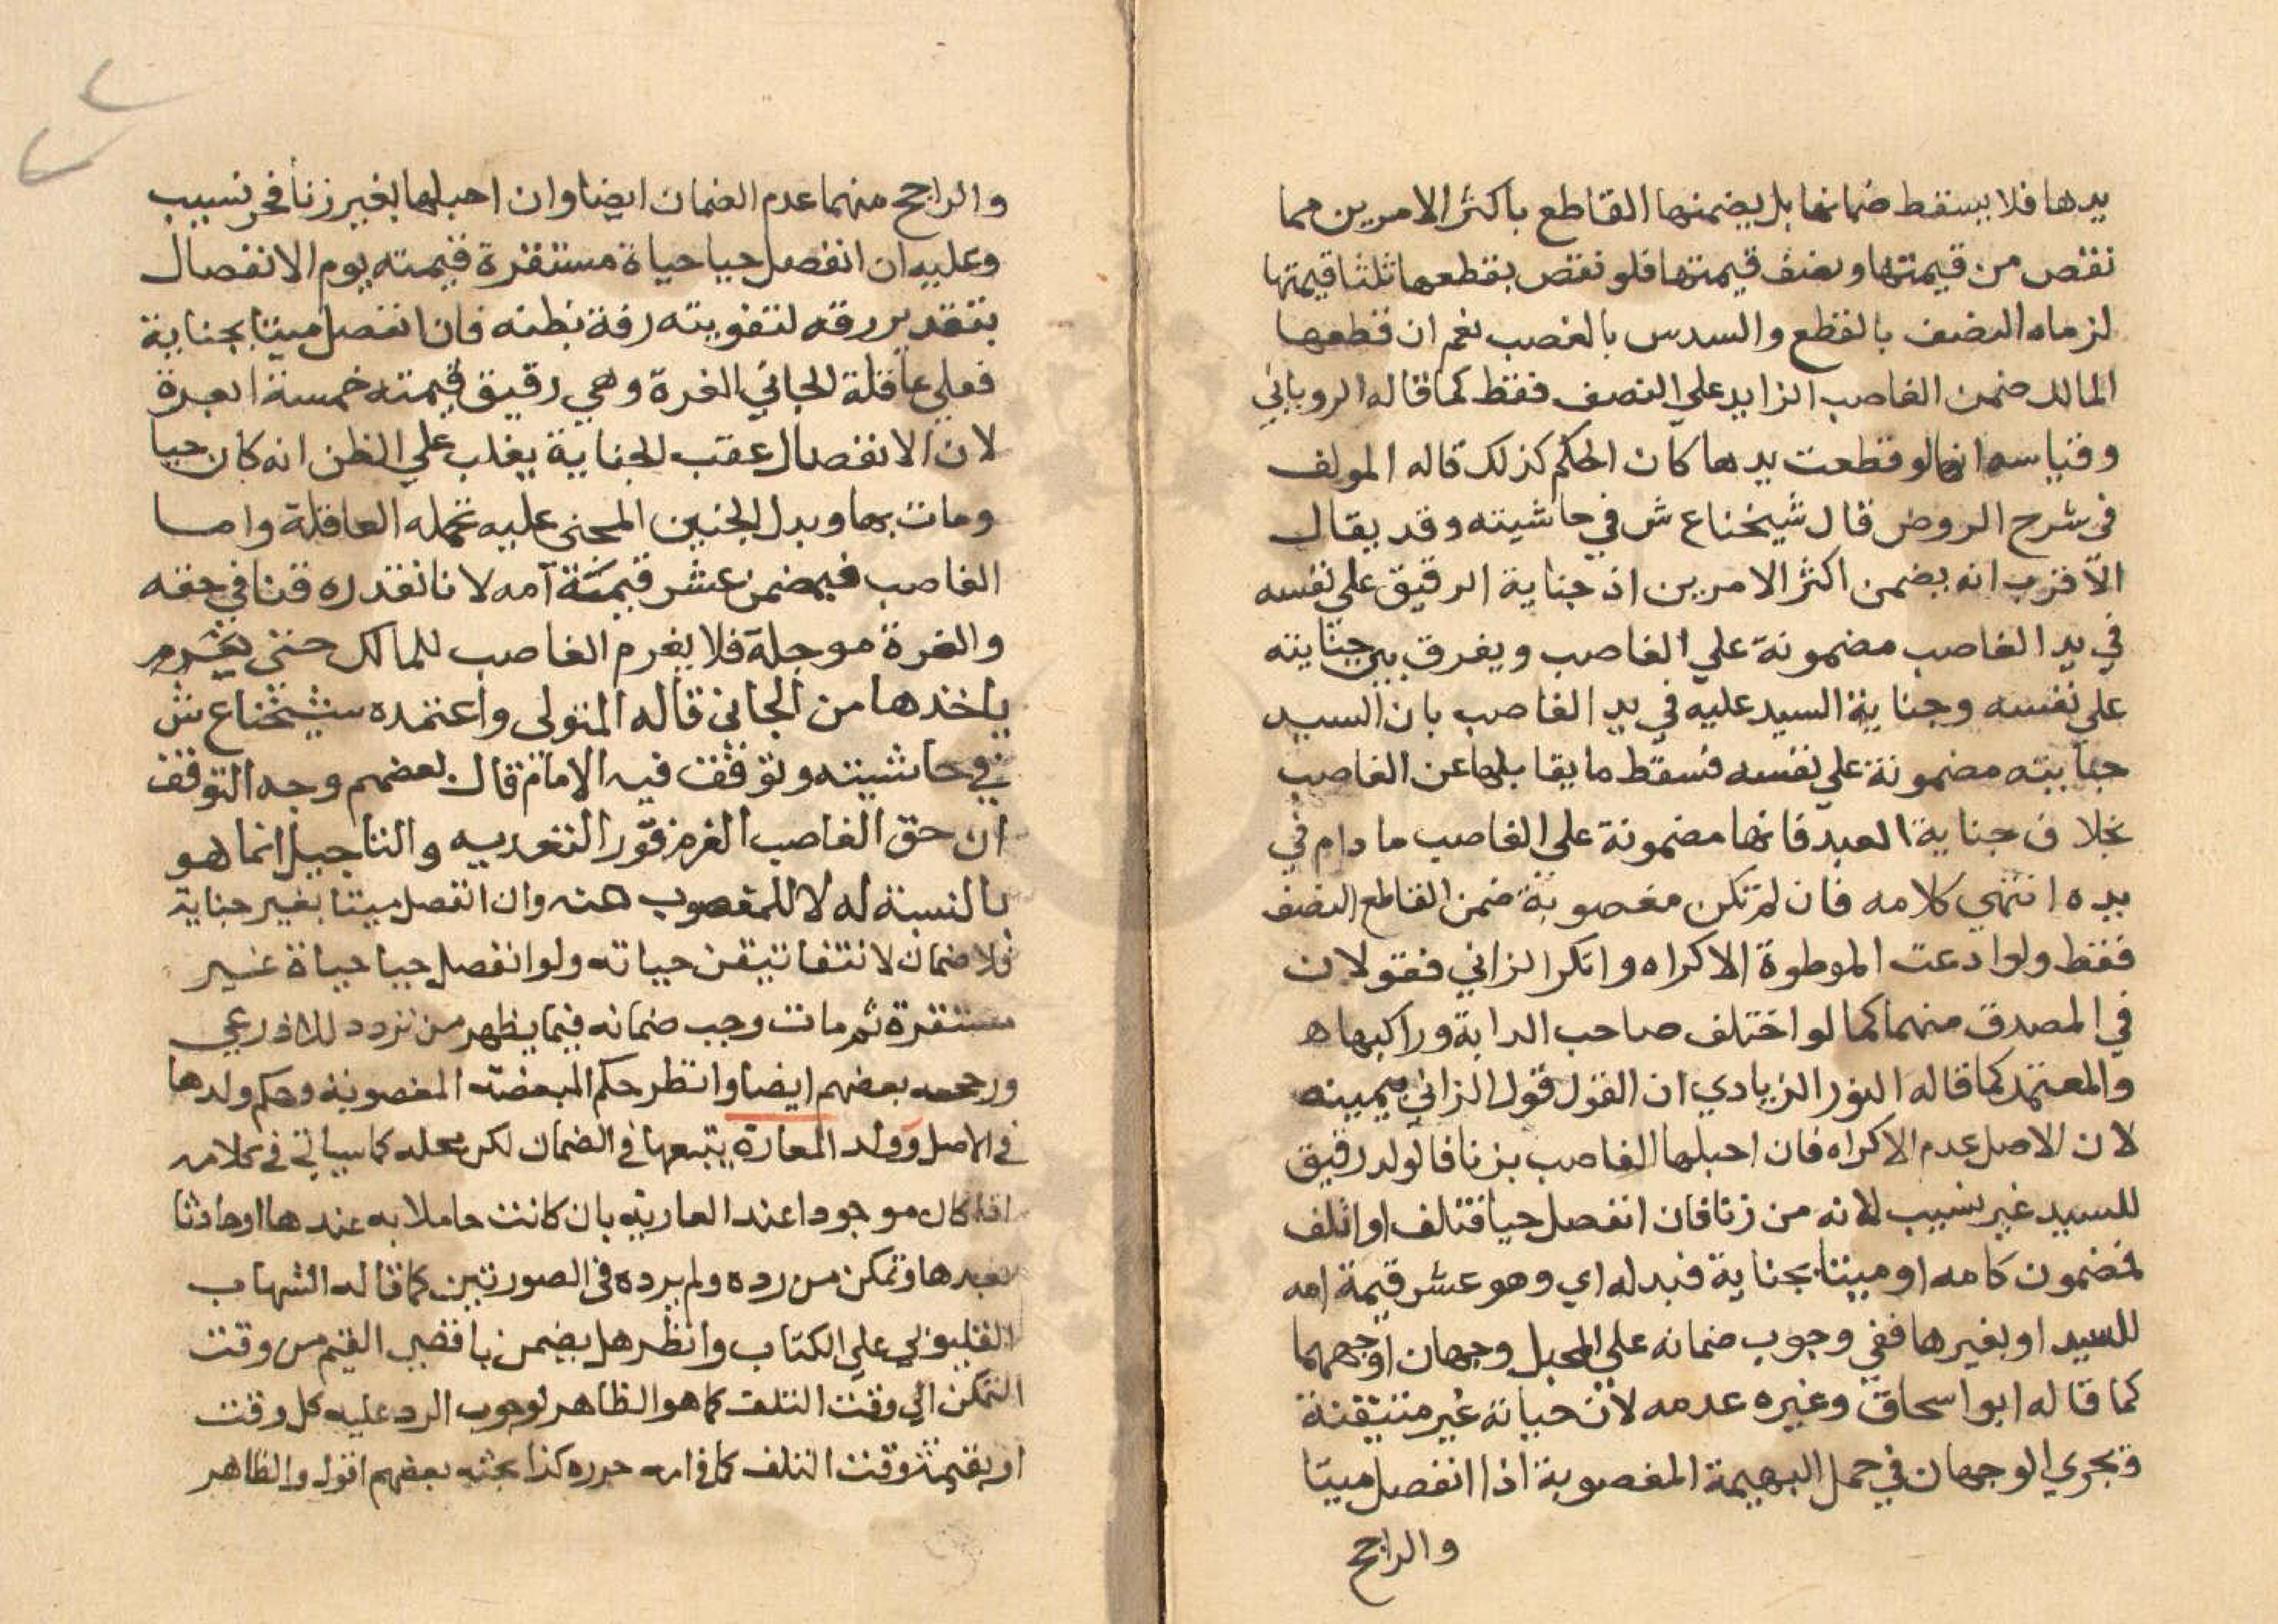 يدها فلا يسقط ضمانها بل يضمنها القاطع باكثر الامرين مما
نقص من قيمتها ونصف قيمتها فلو نقص بقطعها ثلثا قيمتها
لزماه النصف بالقطع والسدس بالغصب نعم ان قطعها
المالك ضمن الغاصب الزايد علي النصف فقط كما قاله الروياني
وقياسه انها لو قطعت يدها كان الحكم كذلك قاله المولف
في شرح الروض قال شيخنا ع ش في حاشيته وقد يقال
الاقرب انه يضمن اكثر الامرين اذ جناية الرقيق علي نفسه
في يد الغاصب مضمونة علي الغاصب ويفرق بين جنايته
علي نفسه وجناية السيد عليه في يد الغاصب بان السيد
جنايته مضمونة علي نفسه فسقط ما يقابلها عن الغاصب
بخلاف جناية العبد فانها مضمونة علي الغاصب ما دام في
يده انتهي كلامه فان لم تكن مغصوبة ضمن القاطع النصف
فقط ولو ادعت الموطوة الاكراه وانكر الزاني فقولان
في المصدق منهما كما لو اختلف صاحب الدابة وراكبها ه
والمعتمد كما قاله النور الزيادي ان القول قول الزاني بيمينه
لان الاصل عدم الاكراه فان احبلها الغاصب بزنا فالولد رقيق
للسيد غير نسيب لانه من زنا فان انفصل حيا فتلف او اتلف
فمضمون كامه او ميتا بجناية فبدله اي وهو عشر قيمة امه
للسيد او بغيرها ففي وجوب ضمانه علي المحبل وجهان اوجههما
كما قاله ابو اسحاق وغيره عدمه لان حياته غير متيقنة
وتجري الوجهان في حمل البهيمة المغصوبة اذا انفصل ميتا
والراجح
والراجح منهما عدم الضمان ايضا وان احبلها بغير زنا فحر نسيب
وعليه ان انفصل حيا حياة مستقرة قيمته يوم الانفصال
بتقدير رقه لتفويته رقه بظنه فان انفصل ميتا بجناية
فعلي عاقلة الجاني الغرة وهي رقيق قيمته خمسة ابعرة
لان الانفصال عقب الجناية يغلب علي الظن انه كان حيا
ومات بها وبدل الجنين المجني عليه تحمله العاقلة واما
الغاصب فيضمن عشر قيمة امه لانا نقدره قنا في حقه
والغرة موجلة فلا يغرم الغاصب للمالك حتي يغرم
ياخذها من الجاني قاله المتولي واعتمده شيخنا ع ش
في حاشيته وتوقف فيه الامام قال بعضهم وجه التوقف
ان حق الغاصب الغرم فورا لتعديه والتاجيل انما هو
بالنسبة له لا للمغصوب منه وان انفصل ميتا بغير جناية
فلا ضمان لانتفا تيقن حياته ولو انفصل حيا حياة غير
مستقرة ثم مات وجب ضمانه فيما يظهر من تردد للاذرعي
ورجحه بعضهم ايضا وانظر حكم المبعضة المغصوبة وحكم ولدها
في الاصل وولد المعارة يتبعها في الضمان لكن محله كما سياتي في كلامه
اذا كان موجودا عند العارية بان كانت حاملا به عندها او حادثا
بعدها وتمكن من رده ولم يرده في الصورتين كما قاله الشهاب
القليوبي علي الكتاب وانظر هل يضمن باقصي القيم من وقت
التمكن الي وقت التلف كما هو الظاهر لوجوب الرد عليه كل وقت
او بقيمة وقت التلف كما في امه حرره كذا بحثه بعضهم اقول والظاهر